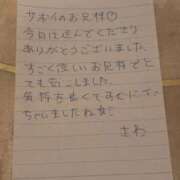 サボイのお兄様①
今日は遊んでくださり
ありがとうございました
すごく優しいお兄様でと
ても安心しました
気持ち良くてすぐにイっ
ちゃいましたね
さわ